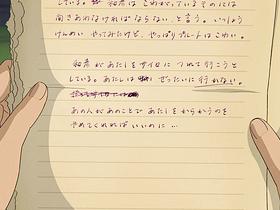 している。和彦は こわがっているものには
向きあわなければならない、と言う。いっしょう
けんめい やってみたけど、やっぱりプルートは こわい。
和彦が あたしを サイロに つれて行こうと
している。あたしは ぜったいに 行かない。
あの人が あのことで あたしを からかうのを
やめてくれれば いいのに…